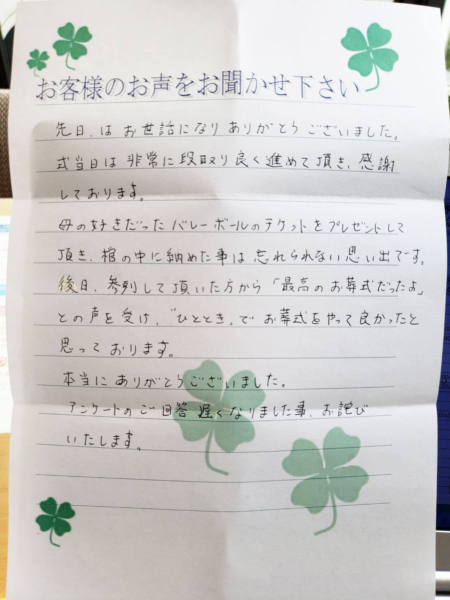 お客様のお声をお聞かせ下さい
先日、は お世話になり ありがとう ございました。
式当日は 非常に 段取り 良く 進めて 頂き、感謝
しております。
母の好きだった バレーボールのチケットを プレゼントして
頂き、棺の中に 納めた事は 忘れられない 思い出です。
後日、参列して 頂いた方から 「最高のお葬式だったよ」
との声を 受け、"ひととき"で お葬式を やって 良かったと
思って おります。
本当に ありがとうございました。
アンケートの ご回答 遅くなりました事、お詫び
いたします。